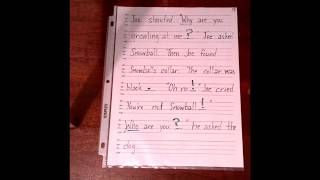 Joe shouted. "Why are you
growling at me?" Joe asked
Snowball. Then Joe found
Snowball's collar. The collar was
black. "Oh no!" Joe cried
"You're not Snowball!"
"Who are you?" He asked the
dog.